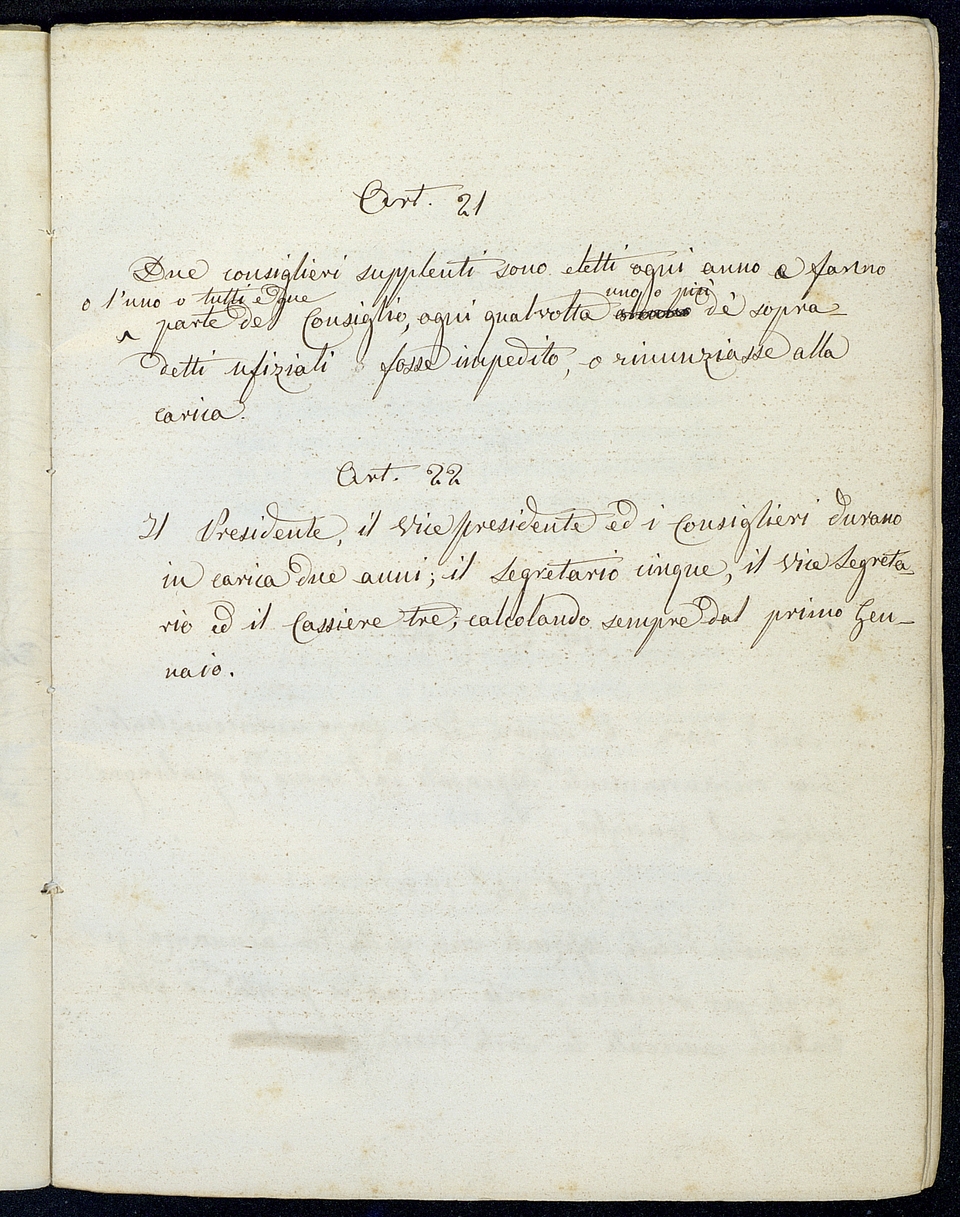 Art. 21
Due consiglieri supplenti sono eletti ogni anno e fanno
o l'uno o tutti e due
uno, o più
parte del Consiglio, ogni qualvolta dè sopra
detti ufiziali fosse impedito, o rinunziasse alla
carica.
Art. 22
Il Presidente, il Vice presidente ed i Consiglieri durano
in carica due anni; il Segretario cinque, il Vice Segreta-
rio ed il Cassiere tre; calcolando sempre dal primo Gen-
naio.